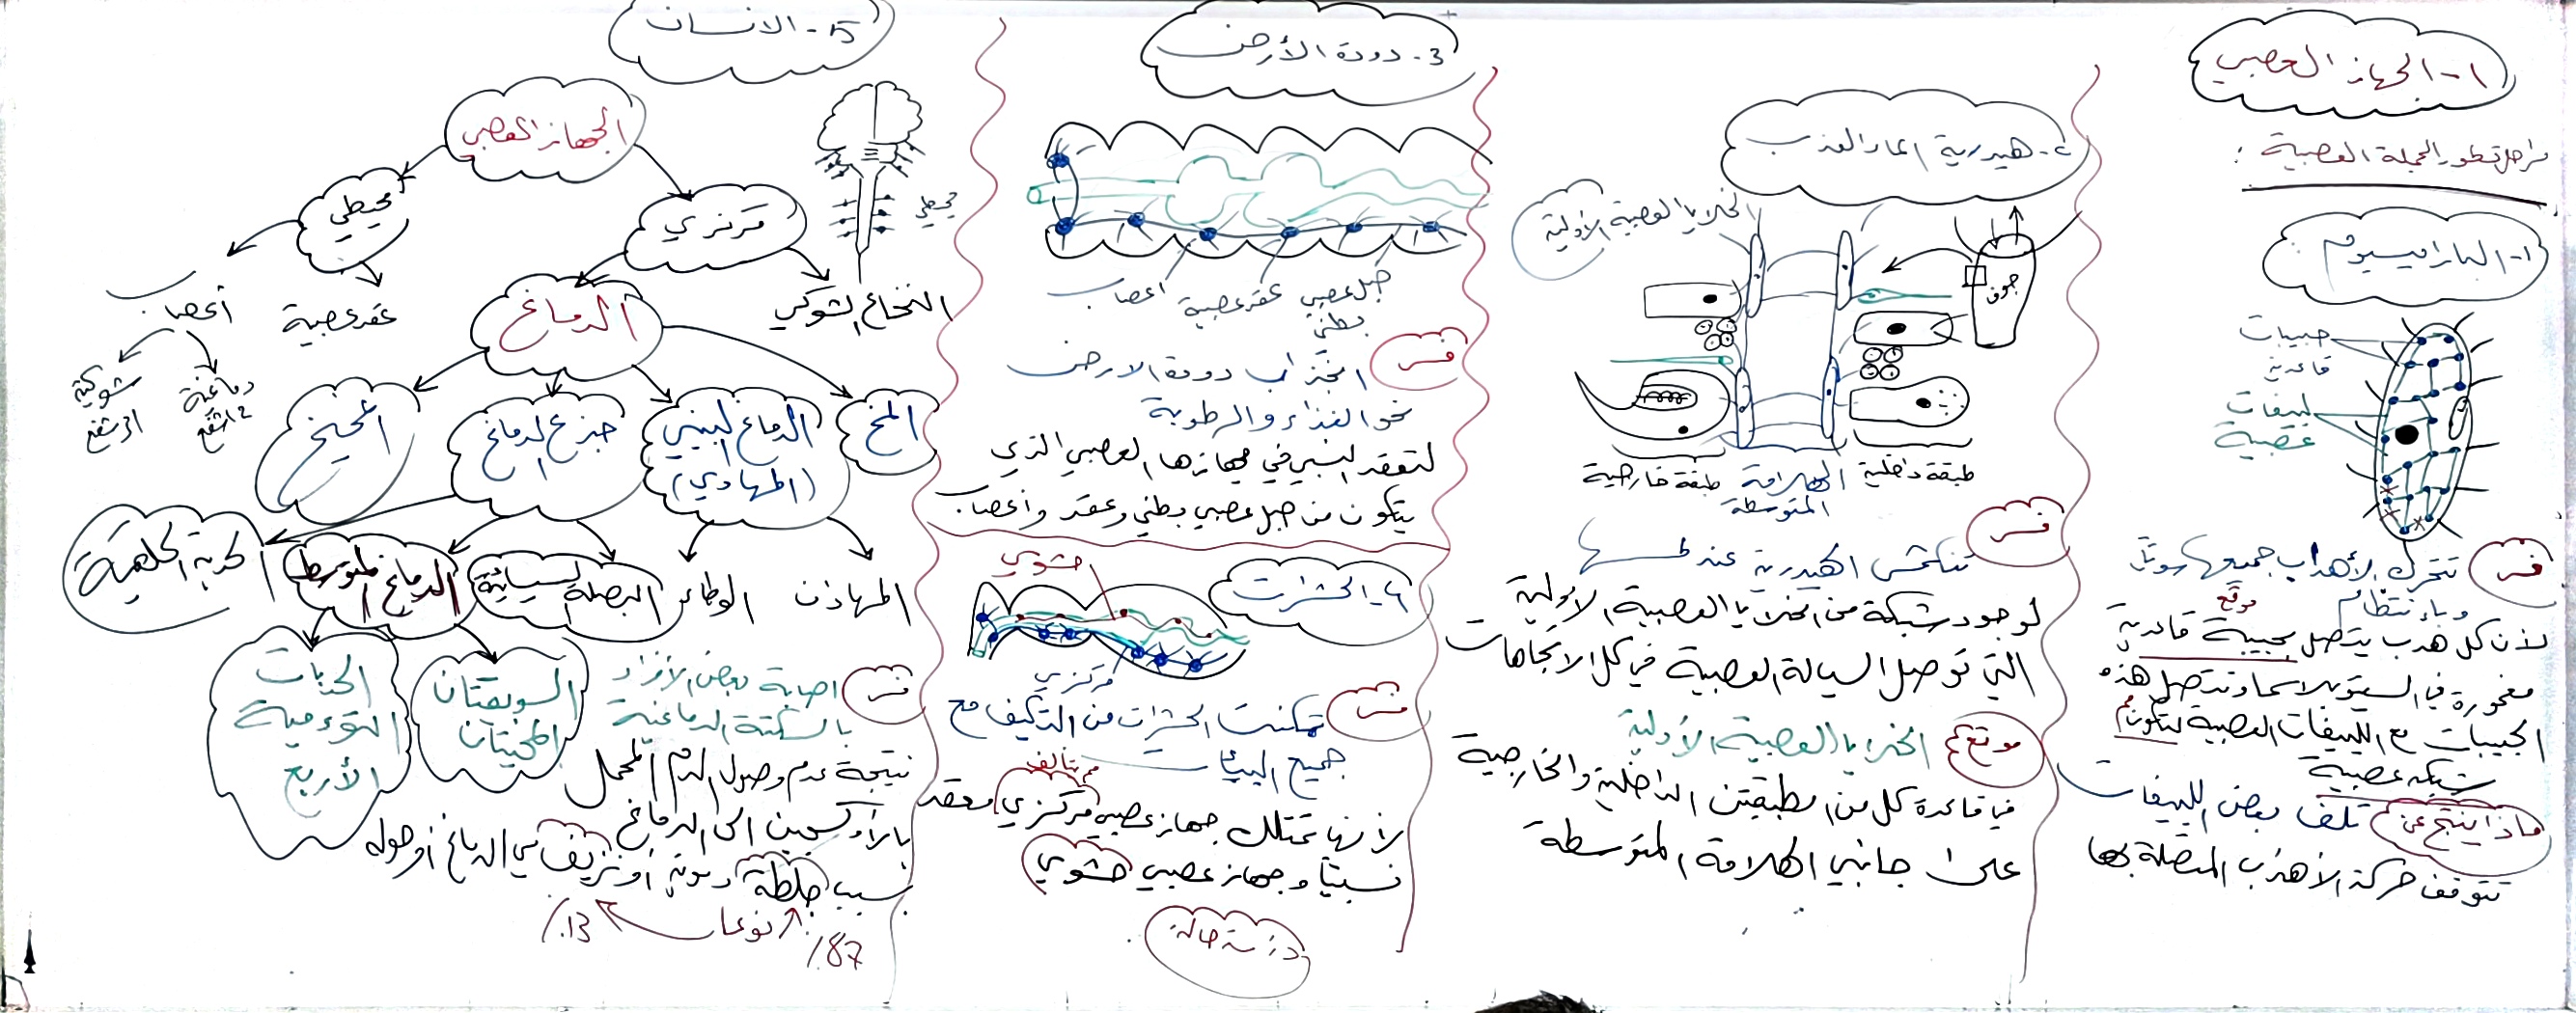 ١- الجهاز العصبي
مراحل تطور الجملة العصبية :
١- البارامسيوم
حبيبات
قاعدية
ليفات
عصبية
فسر تتحرك الأهداب جميعها سوية
وبانتظام
موقع
لأن كل هدب يتصل بحبيبة قاعدية
مغمورة في السيتوبلاسما وتتصل هذه
الحبيبات مع الليفات العصبية لتكون
شبكة عصبية
ماذا ينتج عن تلف بعض الليفات
تتوقف حركة الأهداب المتصلة بها
٢- هيدرية الماء العذب
الخلايا العصبية الأولية
جوف
طبقة داخلية
الهلامة المتوسطة
طبقة خارجية
فسر تنكمش الهيدرية عند لمسها
لوجود شبكة من الخلايا العصبية الأولية
التي توصل السيالة العصبية في كل الاتجاهات
موقع الخلايا العصبية الأولية
في قاعدة كل من الطبقتين الداخلية والخارجية
على جانبي الهلامة المتوسطة
3- دودة الأرض
حبل عصبي بطني
عقد عصبية
أعصاب
فسر انجذاب دودة الارض
نحو الغذاء والرطوبة
لتعقد النسبي في جهازها العصبي الذي
يتكون من حبل عصبي بطني وعقد وأعصاب
٤- الحشرات
حشوي
مركزي
فسر تمكنت الحشرات من التكيف مع
جميع البيئات
مم تتألف
لأنها تمتلك جهاز عصبي مركزي معقد
نسبياً وجهاز عصبي حشوي
دراسة حالة:
5- الانسان
الجهاز العصبي
محيطي
مركزي
محيطي
النخاع الشوكي
الدماغ
عقد عصبية
أعصاب
دماغية
12 شفع
شوكية
31 شفع
المخ
الدماغ البيني
(المهادي)
جذع الدماغ
المخيخ
المهادان
الوطاء
البصلة السيسائية
الدماغ المتوسط
الحدبة الحلقية
السويقتان
المخيتان
الحدبات
التوءمية
الأربع
فسر اصابة بعض الأفراد
بالسكتة الدماغية
نتيجة عدم وصول الدم المحمل
بالأوكسجين الى الدماغ
بسبب جلطة دموية أو نزيف في الدماغ أو حوله
نوعان
87%
13%